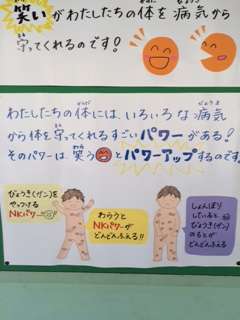 笑いがわたしたちの体を病気から
守ってくれるのです!
わたしたちの体には、いろいろな病気
から体を守ってくれるすごいパワーがある!
そのパワーは、笑うとパワーアップするのです。
びょうき(ガン)を
やっつける
NKパワー
わらうと
NKパワーが
どんどんふえる!!
しょんぼり
していると
びょうき(ガン)
のもとが
どんどんふえる